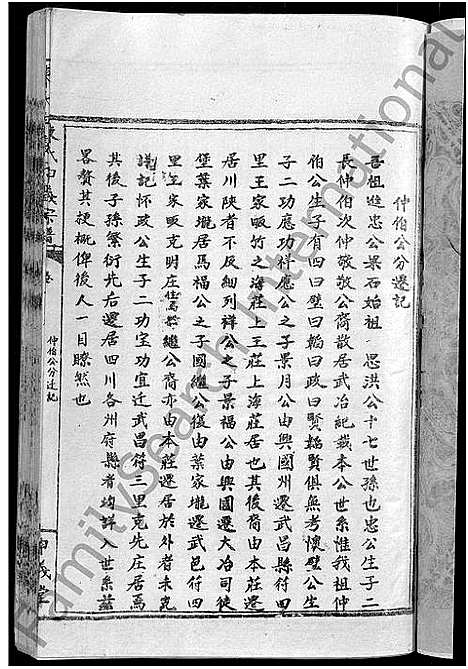 仲伯公分遷記
吾祖遊忠公累石始祖 思洪公十七世孫也忠公生子二
長仲伯次仲敬敬公裔散居武冶紀載本公世系惟我祖仲
伯公生子有四曰璧曰韜曰政曰賢韜賢俱無考懷璧公生
子二功應功祥應公之子景月公由興國州遷武昌縣符四
里王家畈竹之海莊上王莊上海莊居也其後裔由本莊遷
居川陝者不及細列祥公之子景福公由興國遷大冶司徒
堡葉家壠居焉福公之子國繼公復由葉家壠遷武邑符四
里王家畈克明庄 繼公裔亦由本莊遷居於外者未克
誌記懷政公生子二功宝功宜迁武昌符三里克先庄居焉
其後子孫繁衍先后遷居四川各州府縣者均詳入世系茲
畧贅其梗概俾後人一目瞭然也
陳氏中義宗譜
卷
仲伯公分迁記
中義堂
FamilySearch International